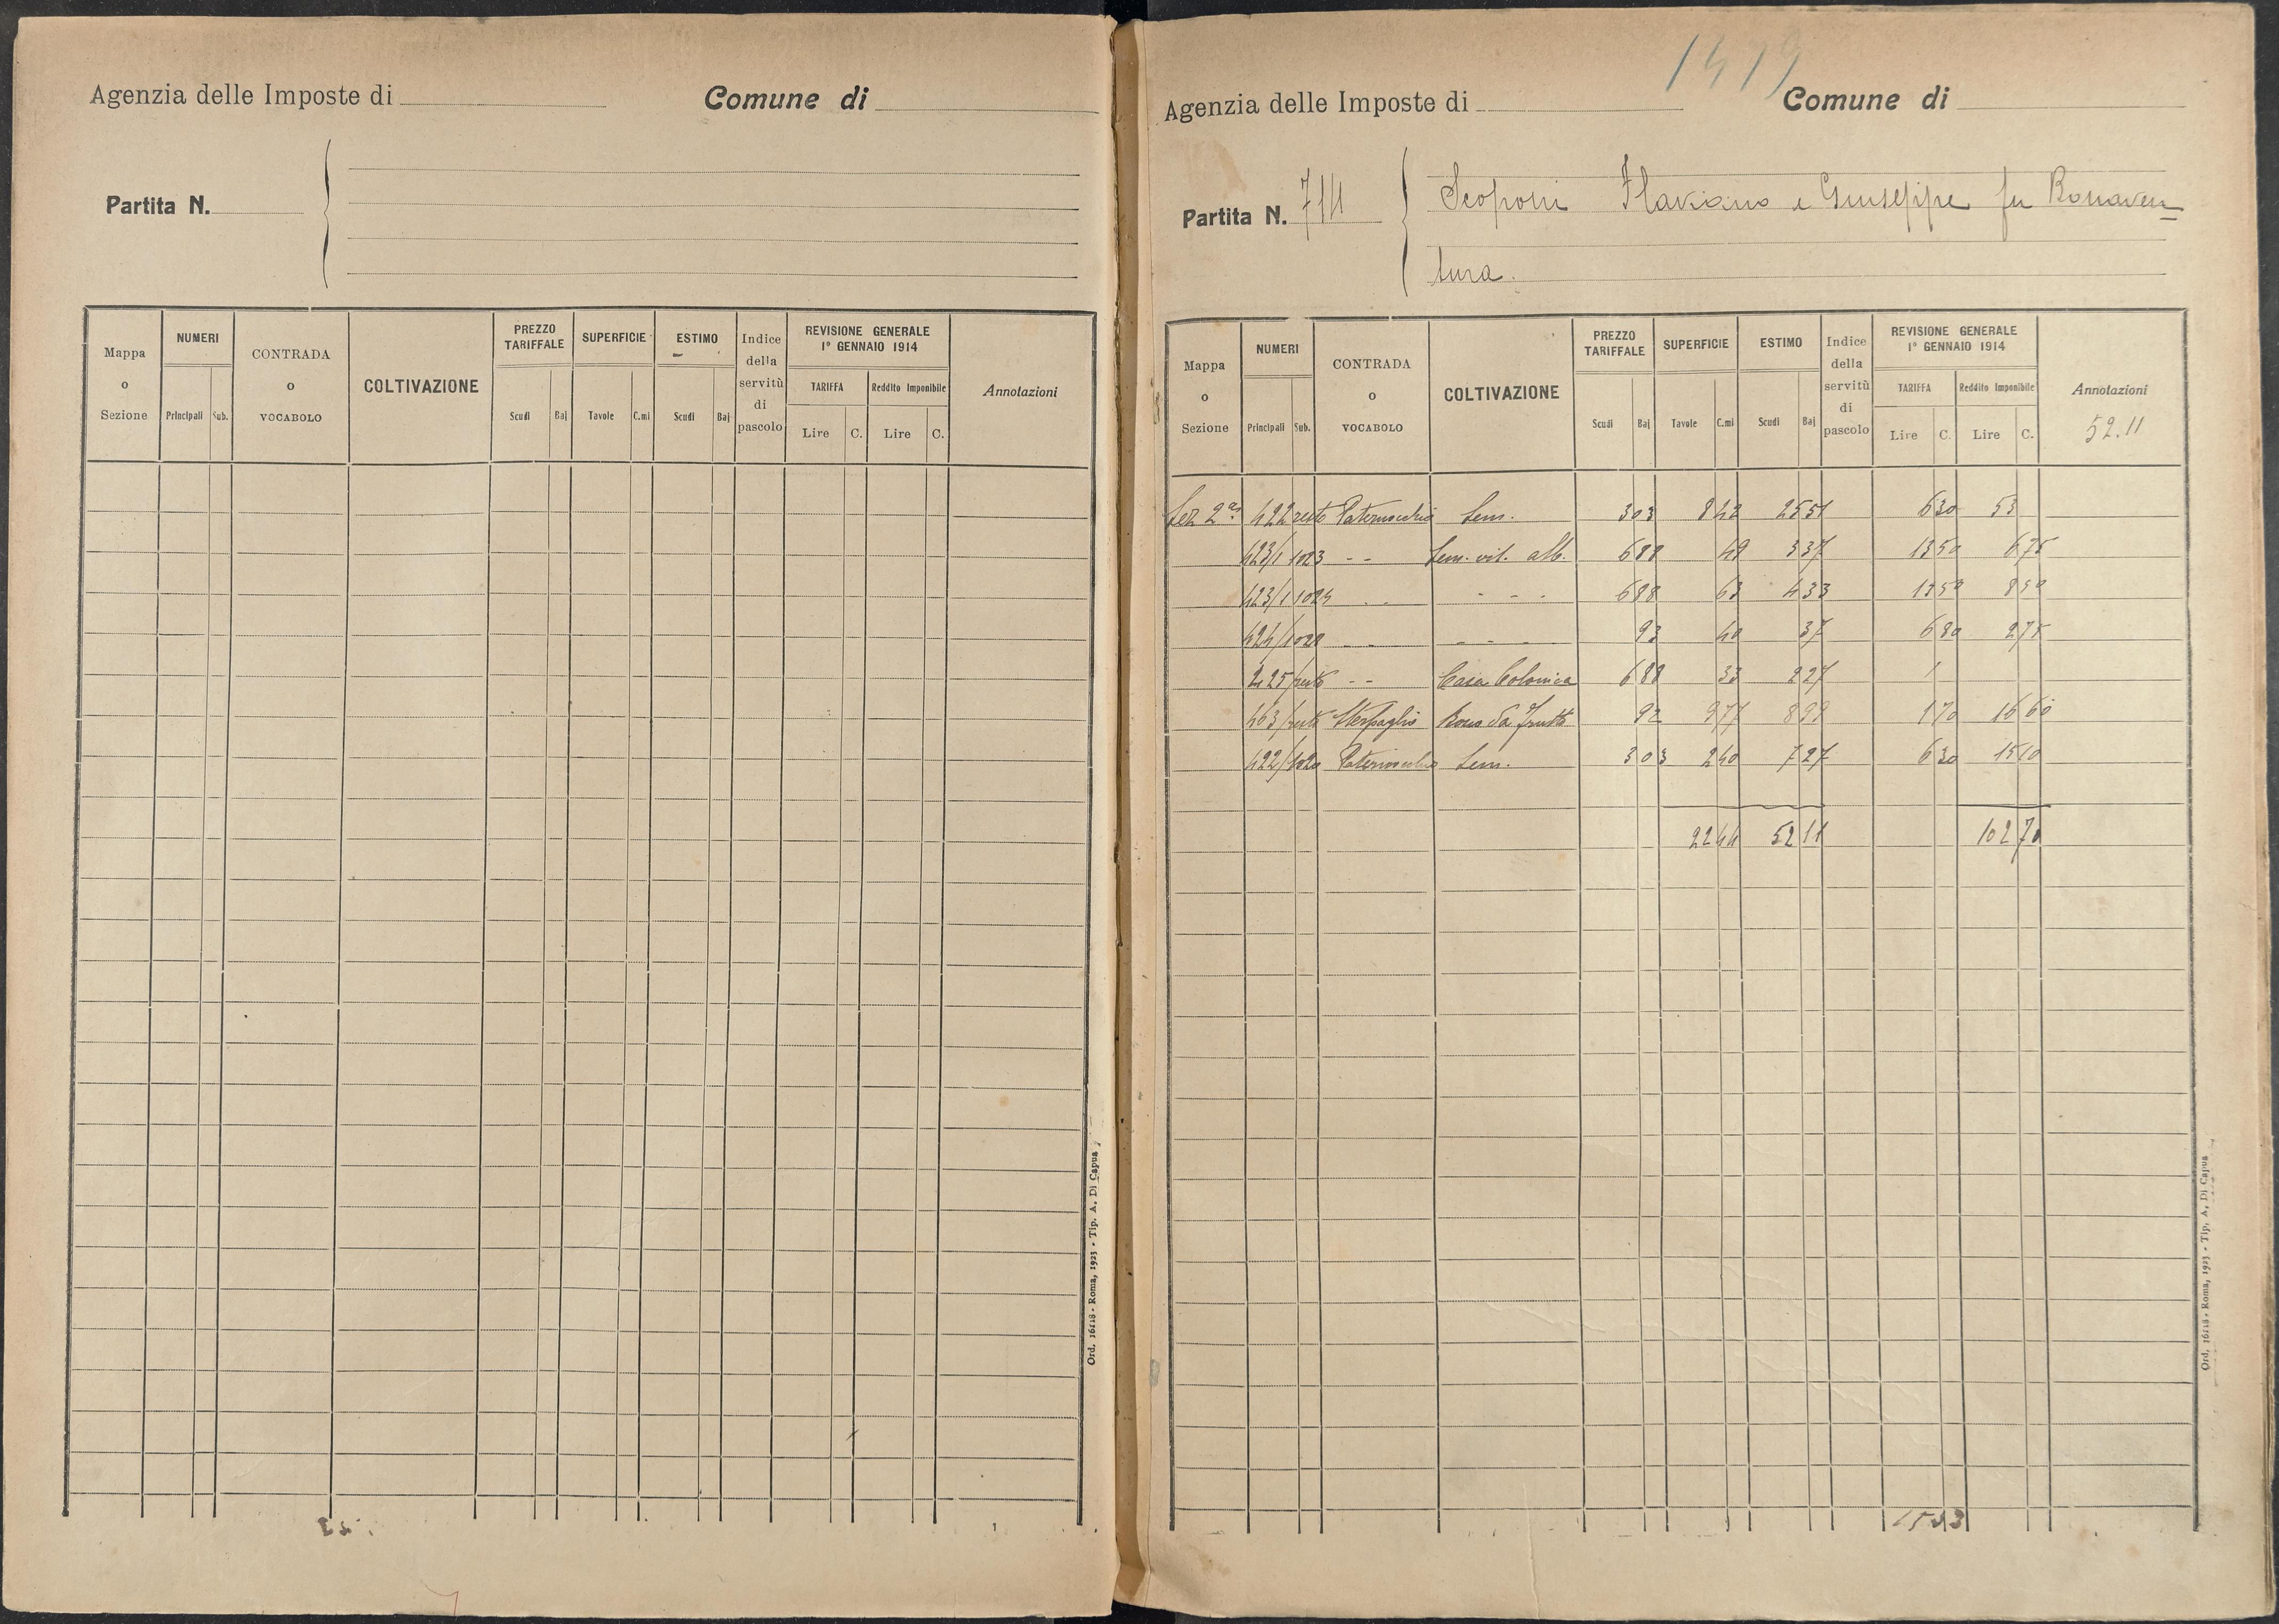 Agenzia delle Imposte di
Comune di
Partita N.
Mappa o Sezione
NUMERI
Principali
Sub.
CONTRADA o VOCABOLO
COLTIVAZIONE
PREZZO TARIFFALE
Scudi
Baj
SUPERFICIE
Tavole
C.mi
ESTIMO
Scudi
Baj
Indice della servitù di pascolo
REVISIONE GENERALE
1° GENNAIO 1914
TARIFFA
Reddito Imponibile
Lire
C.
Lire
C.
Annotazioni
Ord. 16118 - Roma, 1923 - Tip. A. Di Capua
1419
Agenzia delle Imposte di
Comune di
Partita N. 714
Scoponi Flaviano e Giuseppe fu Bonaven=
tura.
Mappa o Sezione
NUMERI
Principali
Sub.
CONTRADA o VOCABOLO
COLTIVAZIONE
PREZZO TARIFFALE
Scudi
Baj
SUPERFICIE
Tavole
C.mi
ESTIMO
Scudi
Baj
Indice della servitù di pascolo
REVISIONE GENERALE
1° GENNAIO 1914
TARIFFA
Reddito Imponibile
Lire
C.
Lire
C.
Annotazioni
52.11
Sez 2a 422 resto Sem. 303 842 2551 630 53
423/1 1023 - - Sem. vit. alb. 688 49 337 1350 675
423/1 1024 - - - - - 688 63 433 1350 850
424/1028 - - - - - 93 40 37 680 275
425/resto - - Casa Colonica 688 33 227 1
463/resto Sterpaglio Bosco da frutto 92 977 899 170 1660
422/1020 Sem. 303 240 727 630 1510
2244 5211 10270
1533
Ord. 16118 - Roma, 1923 - Tip. A. Di Capua